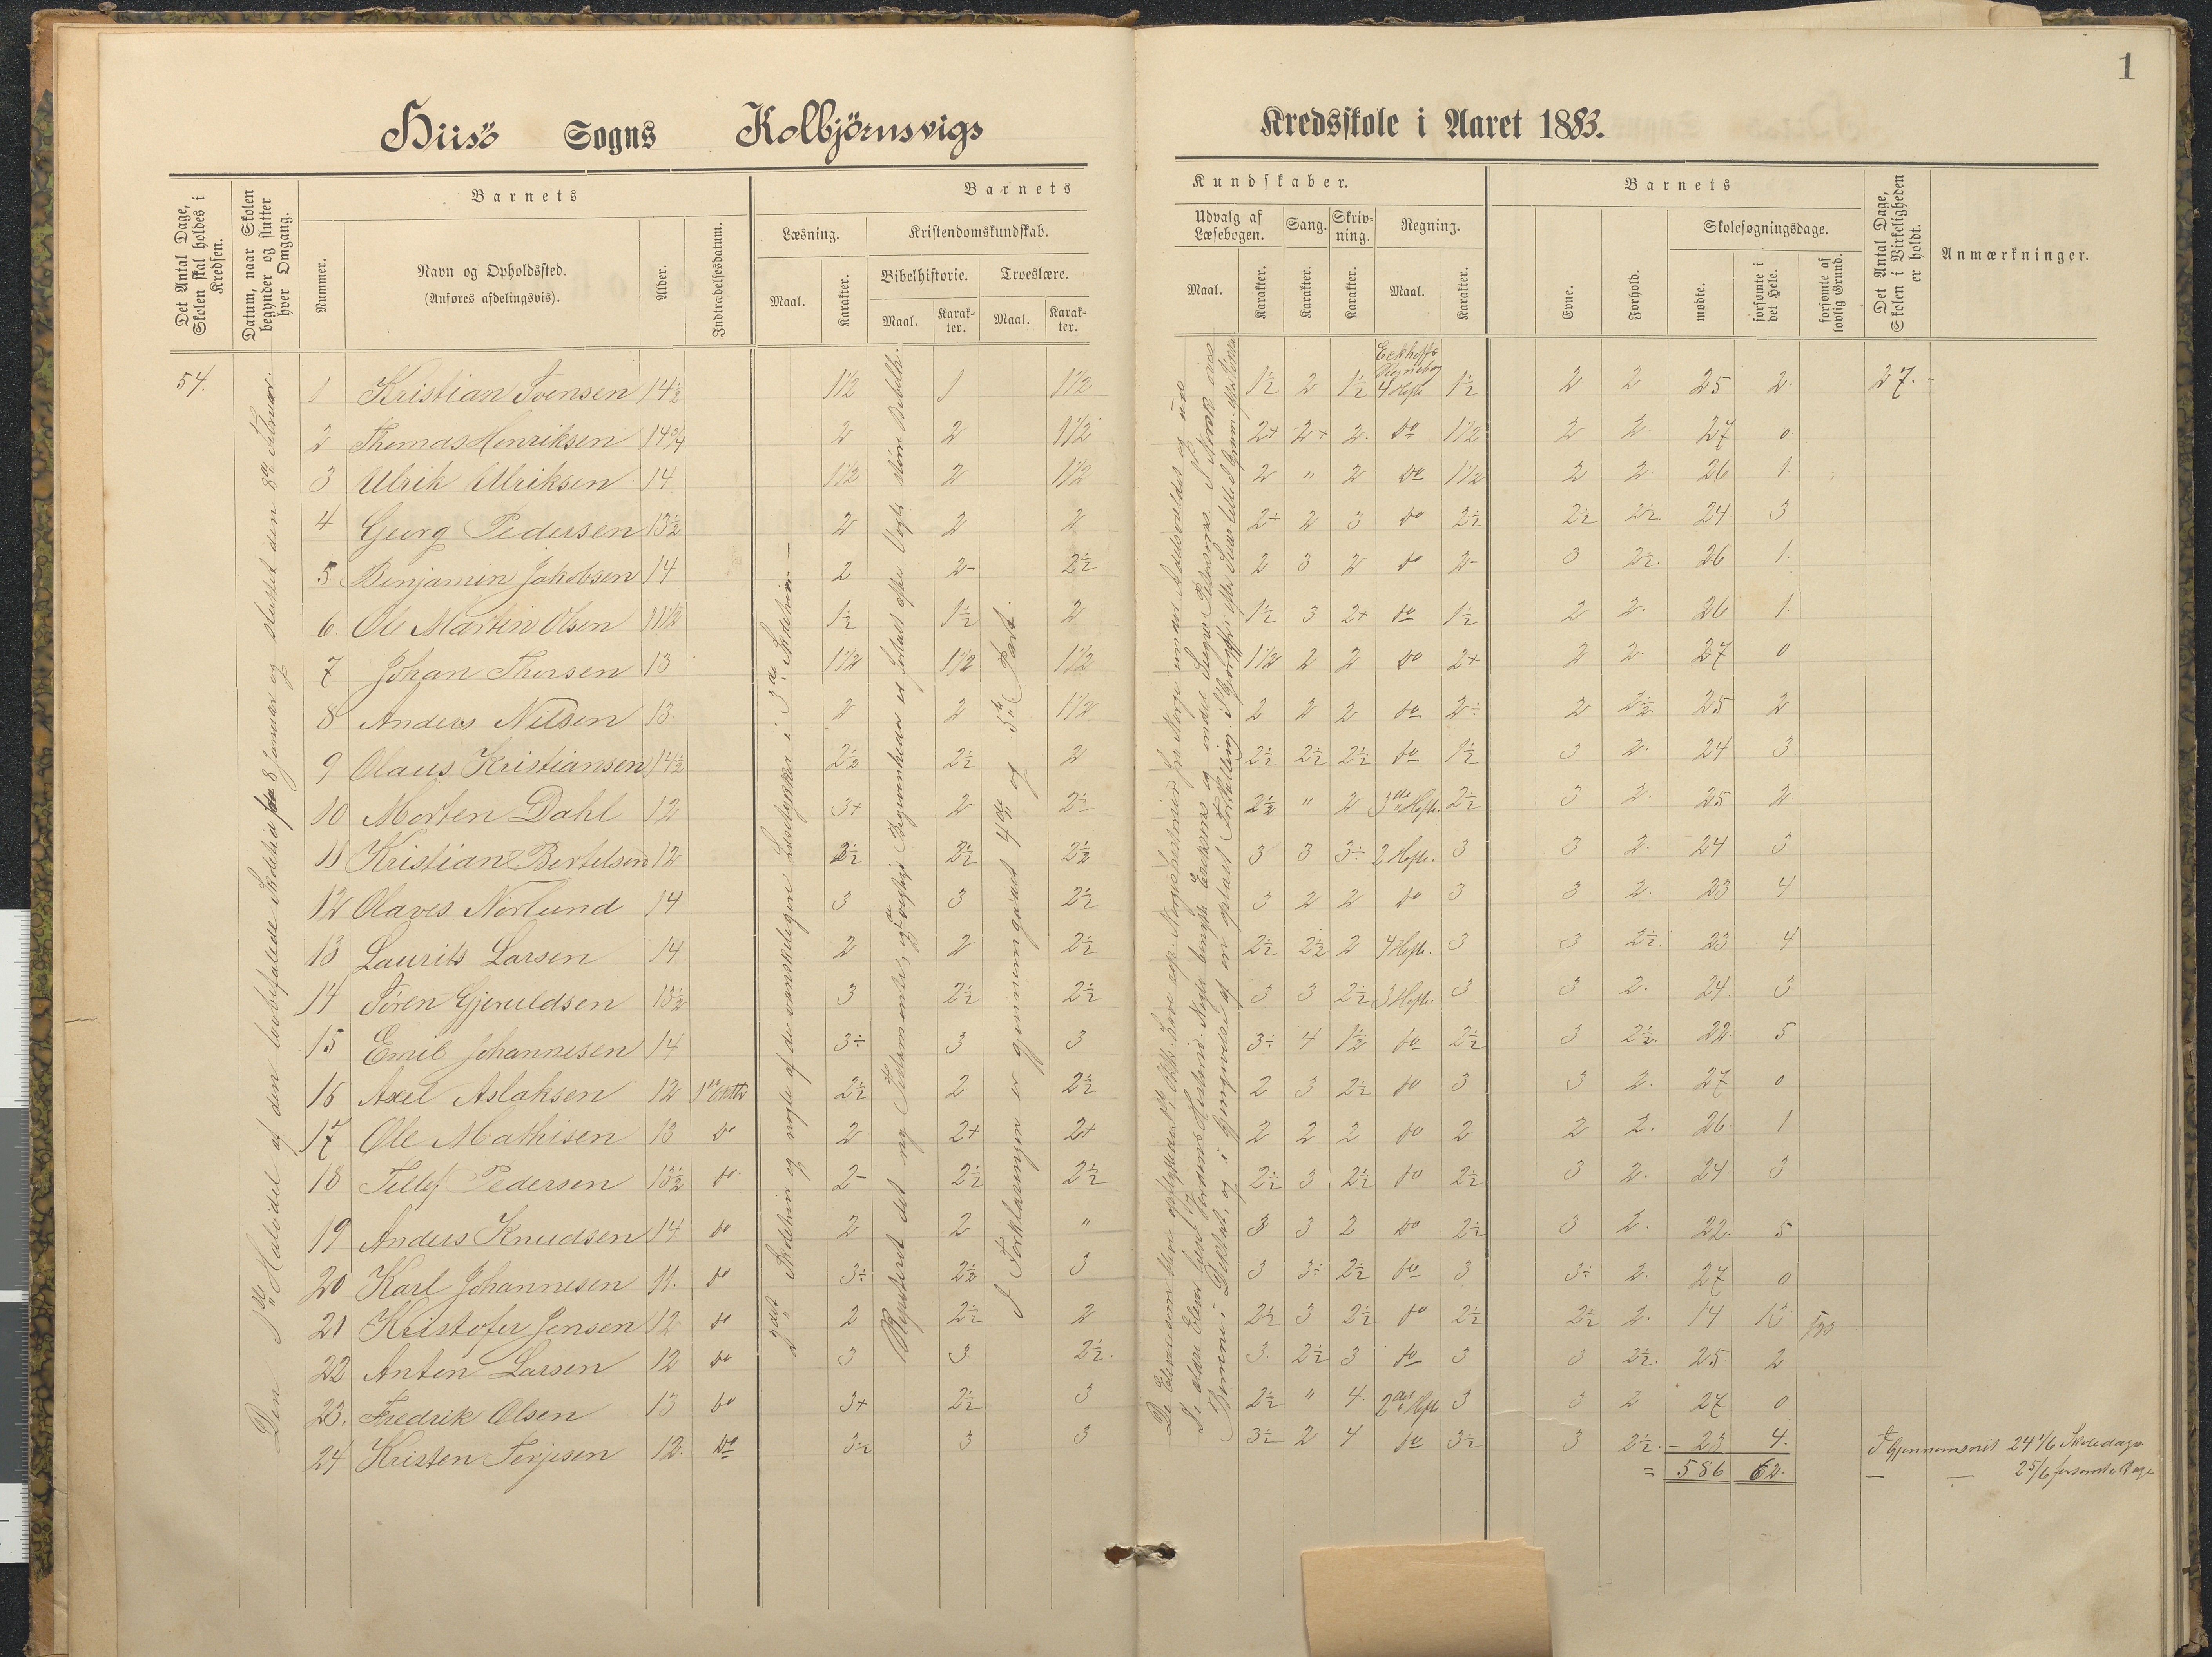 1
Hiisö Sogns Kolbjörnsvigs Kredsskole i Aaret 1883.
Det Antal Dage, Skolen skal holdes i Kredsen.
Datum, naar Skolen begynder og slutter hver Omgang.
Barnets
Nummer.
Navn og Opholdssted.
(Anføres afdelingsvis).
Alder.
Indtrædelsesdatum.
Barnets Kundskaber.
Læsning.
Maal.
Karakter.
Kristendomskundskab.
Bibelhistorie.
Maal.
Karakter.
Troeslære.
Maal.
Karakter.
Udvalg af Læsebogen.
Maal.
Karakter.
Sang.
Karakter.
Skrivning.
Karakter.
Regning.
Maal.
Karakter.
Barnets
Evne.
Forhold.
Skolesøgningsdage.
mødte.
forsømte i det Hele.
forsømte af lovlig Grund.
Det Antal Dage, Skolen i Virkeligheden er holdt.
Anmærkninger.
54.
Den 1ste Halvdel af den lovbefalede Skoletid fra 8 Januar og sluttet den 8de Februar.
2det Skoletrin og nogle af de vanskeligere Læsestykker i 3die Skoletrin.
Repeteret det ny Testamente, og de vigtigste Begivenheder er fortalt efter Vogts større Bibelh.
I Forklaringen er gjennemgaaet 4de og 5te Part.
1 Kristian Svensen 14½ 1½ 1 1½ 1½ 2 1½ Eckhoffs Regnebog 4 Hefte 1½ 2 2 25 2. 27.
2 Thomas Henriksen 14¾ 2 2 1½ 2+ 2+ 2. do 1½ 2 2. 27 0.
3 Ulrik Ulriksen 14 1½ 2 1½ 2 " 2 do 1½ 2 2. 26 1.
4 Georg Pedersen 13½ 2 2 2 2+ 2 3 do 2½ 2½ 2½ 24 3
5 Benjamin Jakobsen 14 2 2- 2½ 2 3 2 do 2- 3 2½. 26 1.
6. Ole Martin Olsen 11½ 1½ 1½ 2 1½ 3 2+ do 1½ 2 2. 26 1.
7 Johan Thorsen 13 1½ 1½ 1½ 1½ 2 2 do 2+ 2 2. 27 0
8 Anders Nilsen 13. 2 2 1½ 2 2 2 do 2÷ 2 2½ 25 2
9 Olaus Kristiansen 14½ 2½ 2½ 2 2½ 2½ 2½ do 1½ 3 2. 24 3
10 Morten Dahl 12 3+ 2 2÷ 2½ " 2 3die Hefte. 2½ 3 2. 25 2.
11 Kristian Bertelsen 12 2½ 2½ 2½ 3 3 3÷ 2 Hefte. 3 3 2. 24 3
12 Olaves Norlund 14 3 3 2½ 3 2 2 do 3 3 2. 23 4
13 Laurits Larsen 14 2 2 2½ 2½ 2½ 2 4 Hefte. 3 3 2½. 23 4
14 Søren Gjeruldsen 13½ 3 2½ 2½ 3 3 2½ 3 Hefte. 3 3 2. 24. 3
15 Emil Johannesen 14 3÷ 3 3 3÷ 4 1½ do 2½ 3 2½. 22 5
16 Axel Aslaksen 12 2½ 2 2½ 2 3 2½ do 3 3 2. 27 0
17 Ole Mathisen 13 do 2 2+ 2+ 2 2 2 do 2 2 2. 26. 1
18 Tellef Pedersen 13½ do 2- 2½ 2½ 2½ 3 2½ do 2½ 3 2. 24. 3
19 Anders Knudsen 14 do 2 2 " 3 3 2 do 2½ 3 2. 22. 5
20 Karl Johannesen 11. do 3÷ 2½ 3 3 3÷ 2½ do 3 3÷ 2. 27 0
21 Kristofer Jensen 12 do 2 2½ 2 2½ 3 2½ do 2½ 2½ 2. 14 13
22 Anton Larsen 12 do 3 3 2½. 3. 2½ 3 do 3 3 2½. 25 2
23. Fredrik Olsen 13 do 3+ 2½ 3 2½ " 4. 2det Hefte 3 3 2 27 0
24 Kristen Terjesen 12. do 3½ 3 3 3½ 2 4 do 3½ 3 2½. - 23 4.
= 586 62.
I Gjennemsnit 24 1/6 Skoledage
— — 2 5/6 forsømte Dage